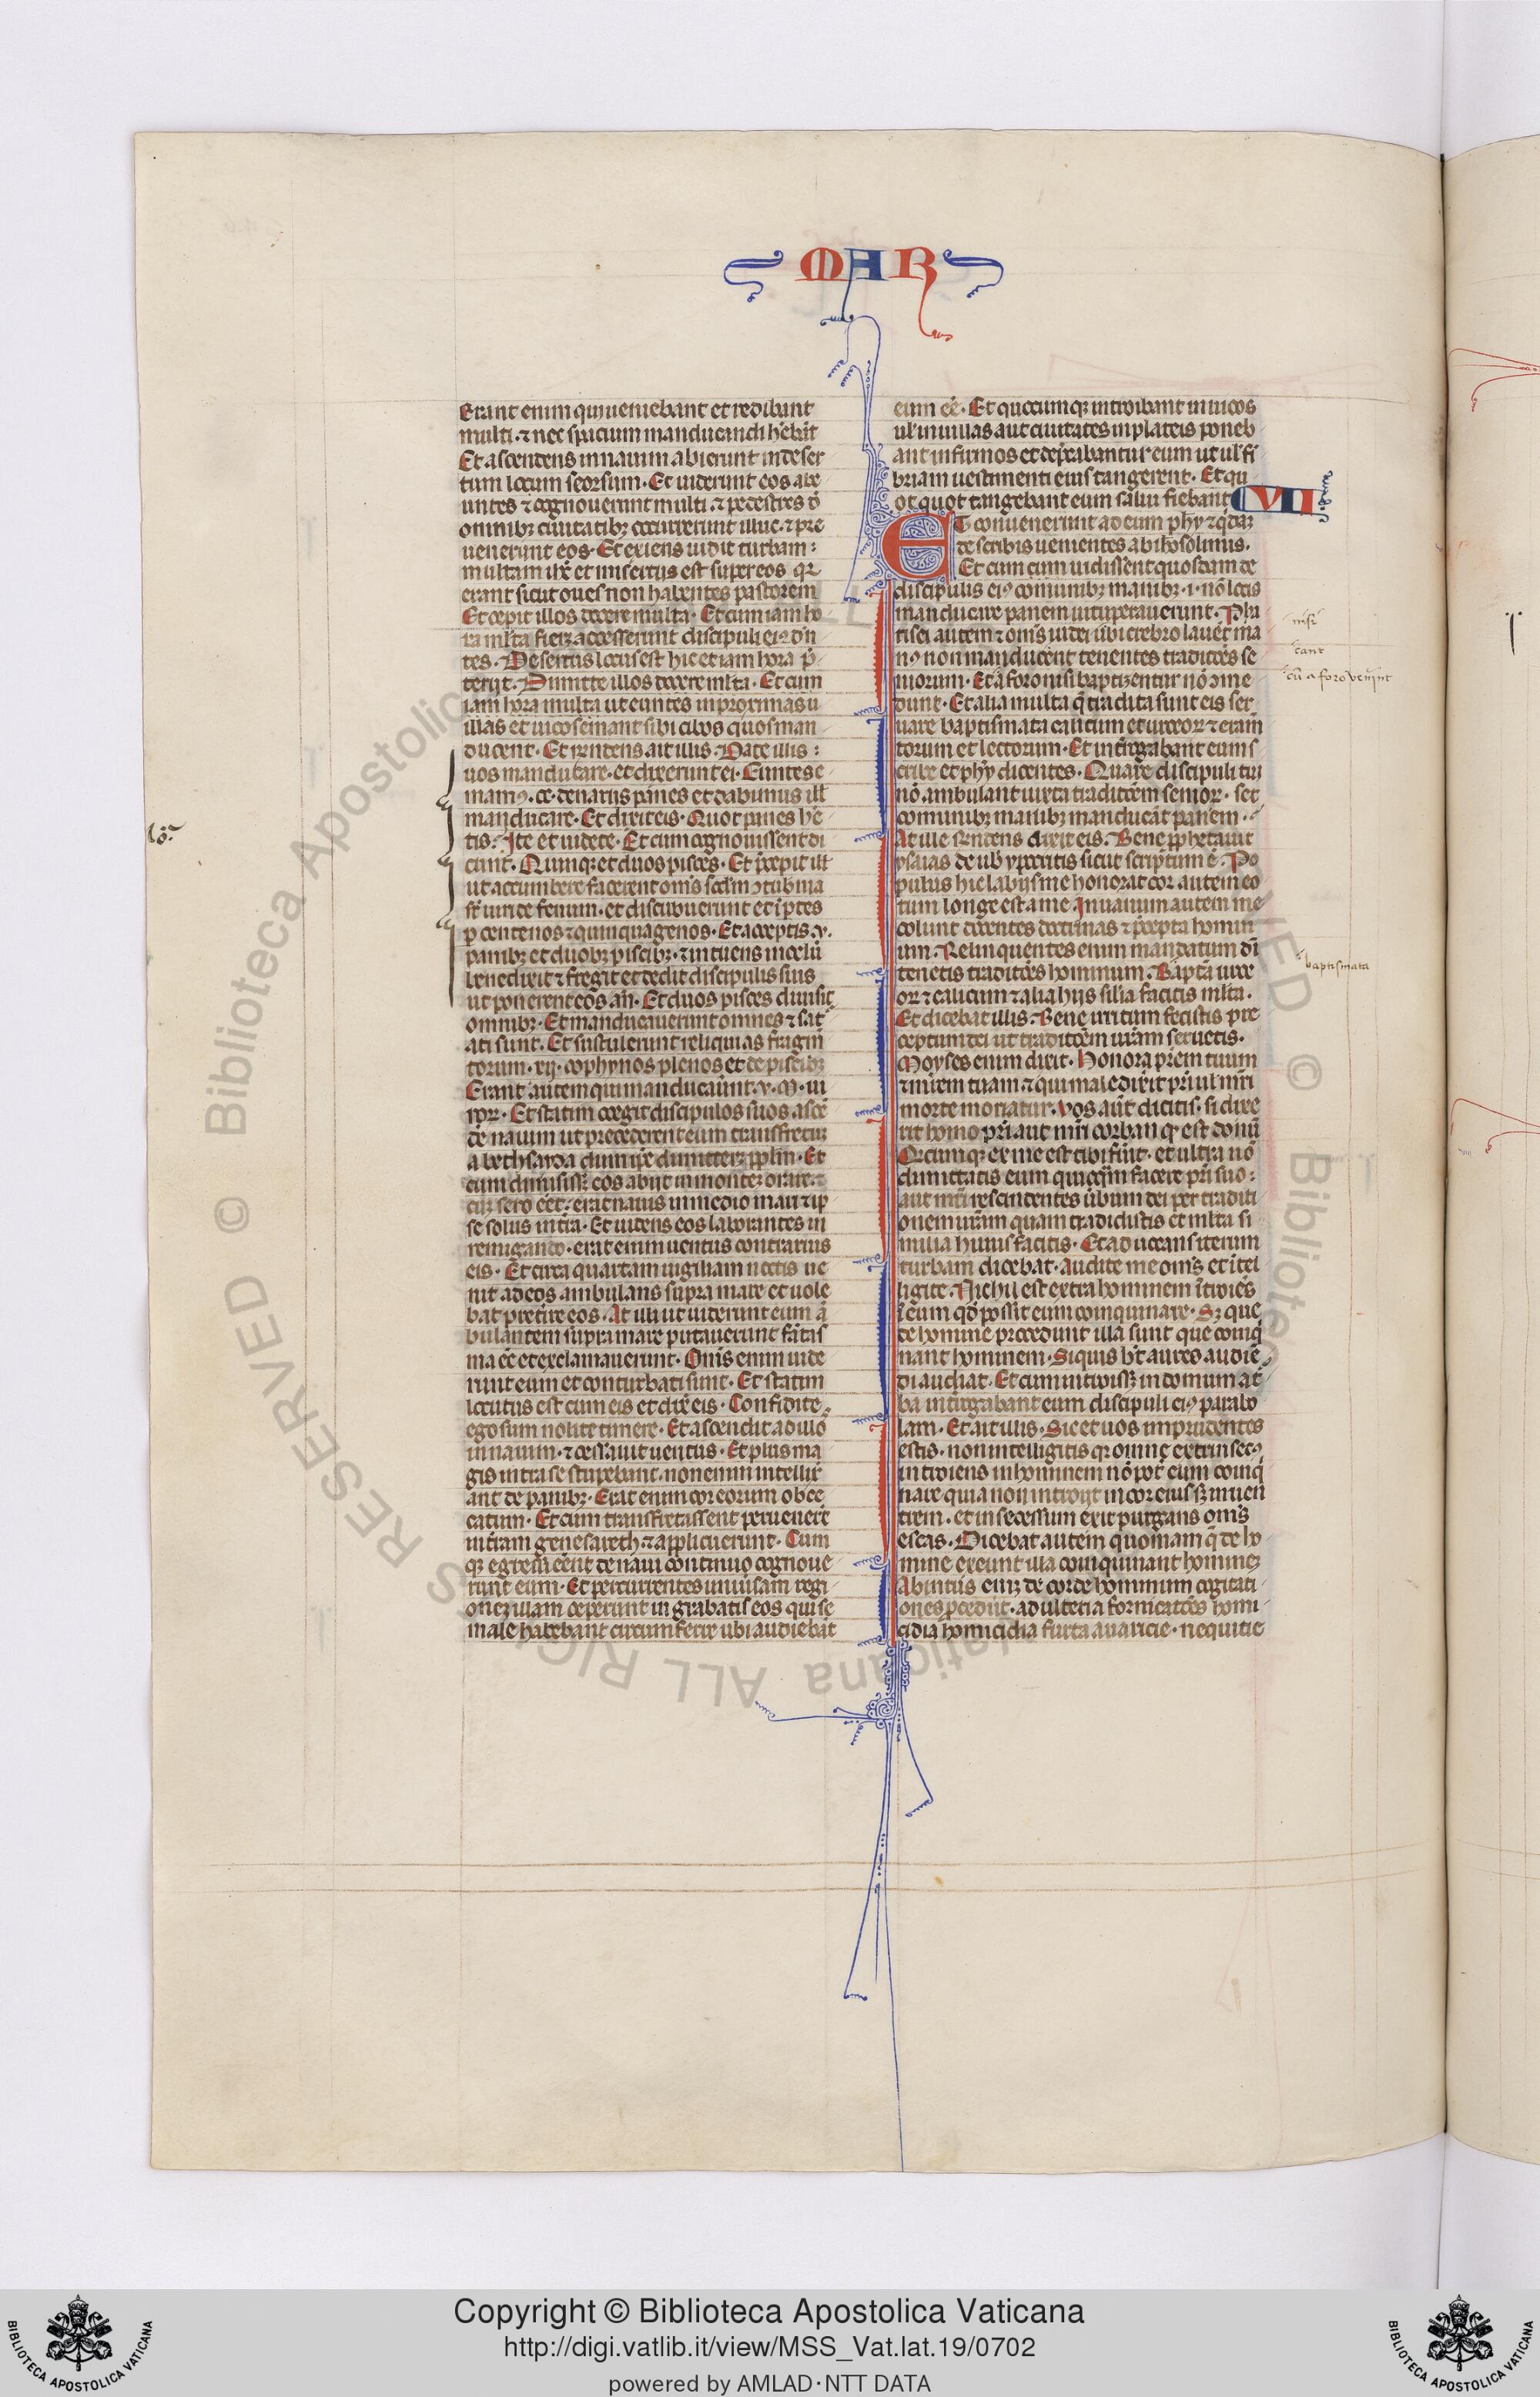 MAR
Erant enim qui ueniebant et redibant
multi · ⁊ nec spacium manducandi hēbāt
Et ascendens in nauim abierunt in deser
tum locum seorsum · Et uiderunt eos abe
untes ⁊ cognouerunt multi · ⁊ pedestres ⁊ d̄
omnibꝫ ciuitatibꝫ cōcurrerunt illuc · ⁊ pre
uenerunt eos · Et exiens uidit turbam
multam ihc̄ et misertus est super eos qꝛ
erant sicut oues non habentes pastorem
Et cepit illos docere multa · Et cum iam ho
ra mlta fieret accesserunt discipuli eiꝰ dn̄
tes · Desertus locus est hic et iam hora p̄
teriit · Dimitte illos docere mlta · Et cum
iam hora multa ut euntes in proximas u
illas et uicos emant sibi cibos quos man
ducent · Et rn̄dens ait illis · Date illis
uos manducare · et dixerunt ei · Euntes e
mamꝰ · cc · denarijs panes et dabimus ill
manducare · Et dixit eis · Quot panes hē
tis · Ite et uidete · Et cum cognouissent di
cunt · Quinqꝫ et duos pisces · Et p̄cepit ill
ut accumbere facerent omīs scd̄m ꝯtubnia
sr̄ uiride fenum · et discubuerunt et ī ptes
p centenos ⁊ quinquagenos · Et acceptis · v ·
panibꝫ et duobꝫ piscibꝫ · ⁊ intuens in celū
benedixit ⁊ fregit et dedit discipulis suis
ut ponerent eos an̄ · Et duos pisces diuisit
omnibꝫ · Et manducauerunt omnes ⁊ sat
ati sunt · Et sustulerunt reliquias fragm̄
torum · xij · cophynos plenos et de piscibꝫ
Erant autem qui manducauūnt · v · M · ui
roꝝ · Et statim coegit discipulos suos ascē
de nauim ut precederent eum trans fretuꝫ
a bethsaida dum ipse dimitteret pplm · Et
cum dimisissꝫ eos abijt in montem orare ·
cum sero eēt · erat nauis in medio mari ⁊ ip
se solus in tr̄a · Et uidens eos laborantes in
remigando · erat enim uentus contrarius
eis · Et circa quartam uigiliam noctis ue
nit ad eos ambulans supra mare et uole
bat preterire eos · At illi ut uiderunt eum ā
bulantem supra mare putauerunt fātas
ma eē et exclamauerunt · Omīs enim uide
runt eum et conturbati sunt · Et statim
locutus est cum eis et dix̄ eis · Confidite
ego sum nolite timere · Et ascendit ad illos
in nauim · ⁊ cessauit uentus · Et plus ma
gis intra se stupebant · non enim intellix̄
ant de panibꝫ · Erat enim cor eorum obce
catum · Et cum transfretassent peruenerē
in tr̄am genesareth · ⁊ applicuerunt · Cum
qꝫ egressi eēnt de naui continuo cognoue
runt eum · Et percurrentes uniūsam regi
onem illam ceperunt in grabatis eos qui se
male habebant circumferre ubi audiebāt
eum eē · Et quocumqꝫ introibant in uicos
ul in uillas aut ciuitates in plateis poneb
ant infirmos et dep̄cabantur eum ut ul fi
briam uestimenti eius tangerent · Et qu
ot quot tangebant eum salui fiebant
VII
ET conuenerunt ad eum phȳ ⁊ qidaꝫ
de scribis uenientes ab iherosolimis ·
Et cum cum uidissent quosdam de
discipulis eiꝰ comunibꝫ manibꝫ · i · nō lotis
manducare panem uituperauerunt · Pha
risei autem ⁊ omīs iudei ubi crebro lauēt ma
nꝰ non manducent tenentes traditōēs se
niorum · Et a foro nisi baptizentur nō ꝯme
dunt · Et alia multa q̄ tradita sunt eis ser
uare baptismata calicum et urceoꝝ ⁊ eram
torum et lectorum · Et int̄rogabant eum s
cribe et phȳ dicentes · Quare discipuli tui
nō ambulant iuxta traditōēm senioꝝ · set
comunibꝫ manibꝫ manducāt panem ·
At ille rn̄dens dixit eis · Bene pphetauit
ysaias de uob ypocritis sicut scriptum ē · Po
pulus hic labijs me honorat cor autem eo
rum longe est a me · In uanum autem me
colunt docentes doctrinas ⁊ p̄cepta homin
um · Relinquentes enim mandatum dī
tenetis traditōēs hominum · Bapta urce
oꝝ ⁊ calicum ⁊ alia hijs silia facitis mlta ·
Et dicebat illis · Bene irritum fecistis pre
ceptum dei ut traditōēm ur̄am seruetis ·
Moyses enim dixit · Honora pr̄em tuum
⁊ mr̄em tuam · ⁊ qui maledixerit pri ul mr̄i
morte moriatur · vos aūt dicitis · si dixe
rit homo pr̄i aut mr̄i corban qđ est donū
Qđcumqꝫ ex me est tibi fūit · et ultra nō
dimittatis eum quicqm̄ facere pr̄i suo
aut mr̄i rescindentes ūbum dei per traditi
onem ur̄am quam tradidistis et mlta si
milia huius facitis · Et aduocans iterum
turbam dicebat · Audite me omīs et ītel
ligite · Nichil est extra hominem ītroiēs
ī eum qđ possit eum coinquinare · Sꝫ que
de homine procedunt illa sunt que coinq̄
nant hominem · Si quis ht̄ aures audiē
di audiat · Et cum introissꝫ in domum a t̄
ba int̄rogabant eum discipuli eiꝰ parabo
lam · Et ait illis · Sic et uos imprudentes
estis · non intelligitis qꝛ omne extrinsecꝰ
introiens in hominem nō pot̄ eum coinq̄
nare quia non introijt in cor eius sꝫ in uen
trem · et in secessum exit purgans omīs
escas · Dicebat autem quoniam q̄ de ho
mine exeunt illa coinquinant hominem
Ab intus enim de corde hominum cogitati
ones p̄cedūt · adulteria fornicatōēs homi
cidia homicidia furta auaricie · nequitie
nisi
cant
cū a foro venīnt
baptismata
BIBLIOTECA APOSTOLICA VATICANA
Copyright © Biblioteca Apostolica Vaticana
http://digi.vatlib.it/view/MSS_Vat.lat.19/0702
powered by AMLAD·NTT DATA
BIBLIOTECA APOSTOLICA VATICANA
© Biblioteca Apostolica Vaticana ALL RIGHTS RESERVED